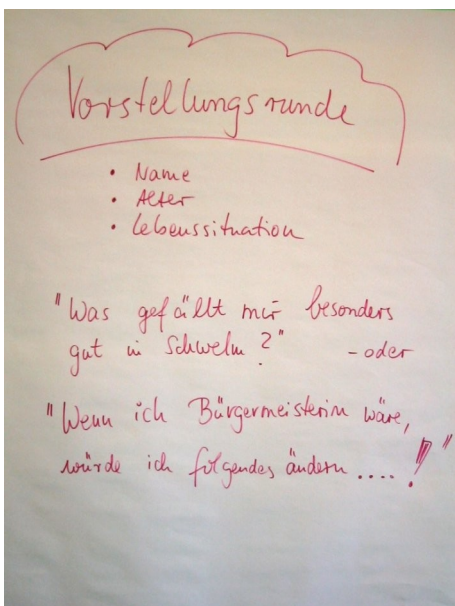 Vorstellungsrunde
• Name
• Alter
• Lebenssituation
"Was gefällt mir besonders
gut in Schwelm?" - oder
"Wenn ich Bürgermeisterin wäre,
würde ich folgendes ändern....!"